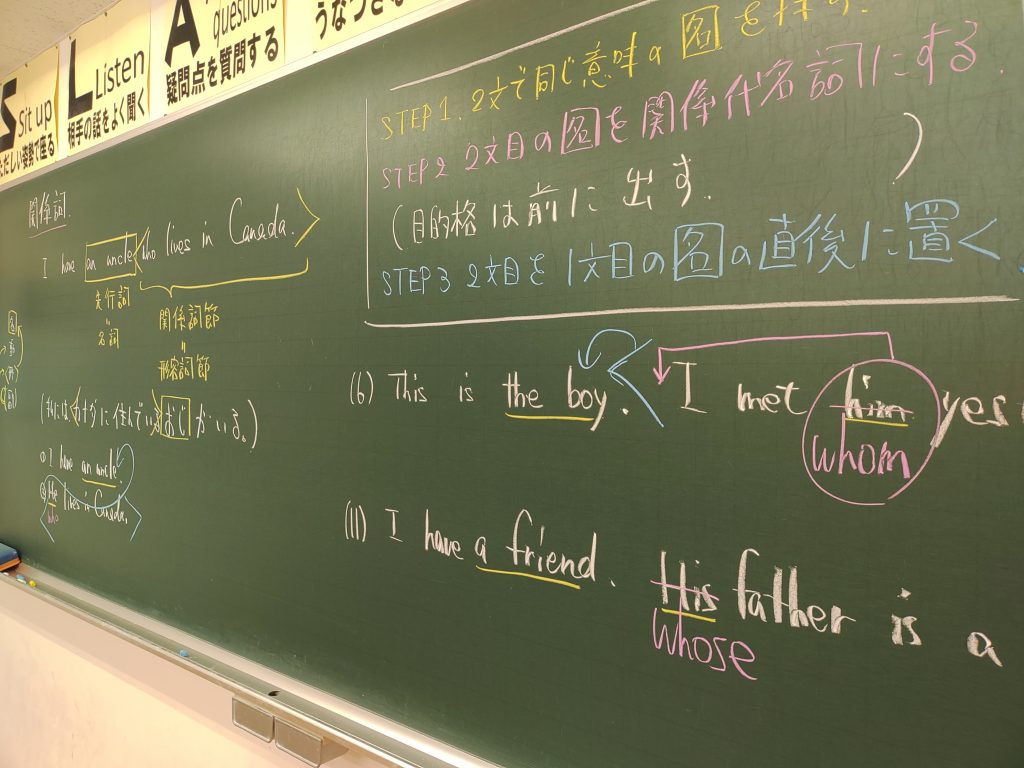 S Sit up
ただしい姿勢で座る
L Listen
相手の話をよく聞く
A questions
疑問点を質問する
うなづき
関係詞.
I have an uncle who lives in Canada.
先行詞
〃
名詞
関係詞節
〃
形容詞節
(私には カナダに住んでいる おじ がいる。)
① I have an uncle.
② He lives in Canada.
who
STEP 1. 2文で同じ意味の 図 を探す.
STEP 2 2文目の 図 を関係代名詞にする.
(目的格は前に出す. )
STEP 3 2文目を 1文目の 図 の直後に置く
(6) This is the boy. I met him yes
whom
(11) I have a friend. His father is a
whose